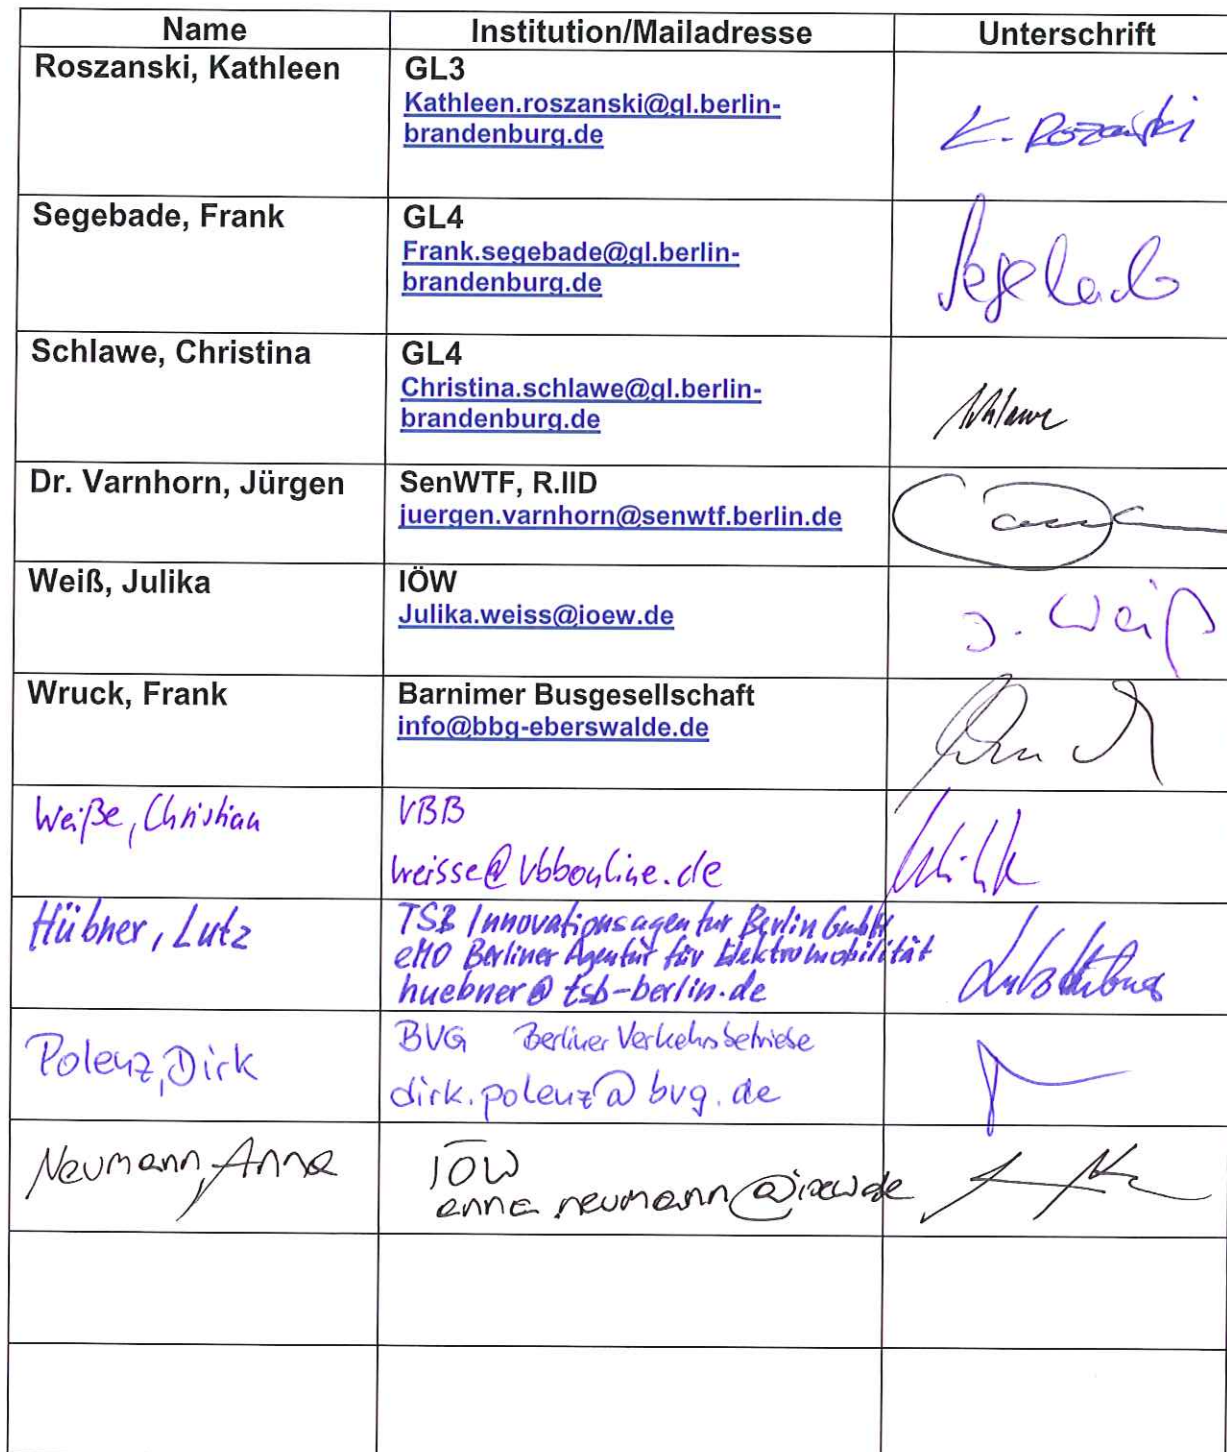 Name Institution/Mailadresse Unterschrift
Roszanski, Kathleen GL3
Kathleen.roszanski@gl.berlin-
brandenburg.de
K. Rozanski
Segebade, Frank GL4
Frank.segebade@gl.berlin-
brandenburg.de
Segebade
Schlawe, Christina GL4
Christina.schlawe@gl.berlin-
brandenburg.de
Schlawe
Dr. Varnhorn, Jürgen SenWTF, R.IID
juergen.varnhorn@senwtf.berlin.de
Weiß, Julika IÖW
Julika.weiss@ioew.de
J. Weiß
Wruck, Frank Barnimer Busgesellschaft
info@bbg-eberswalde.de
Weiße, Christian VBB
weisse@vbbonline.de
Hübner, Lutz TSB Innovationsagentur Berlin GmbH
eMO Berliner Agentur für Elektromobilität
huebner@tsb-berlin.de
Lutz Hübner
Polenz, Dirk BVG Berliner Verkehrsbetriebe
dirk.polenz@bvg.de
Neumann, Anna IÖW
anna.neumann@ioew.de